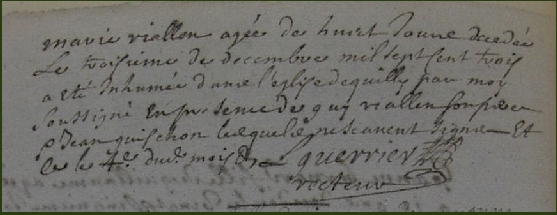 marie viallon agée de huict Jours decedée
Le troisieme de decembre mil sept cent trois
a eté Inhumée dans l'église de quilly par moi
soussigné En presence de guy viallon son pere
& Jean guischon lesquels ne scavent signer Et
ce le 4e. dud. mois
guerrier
recteur